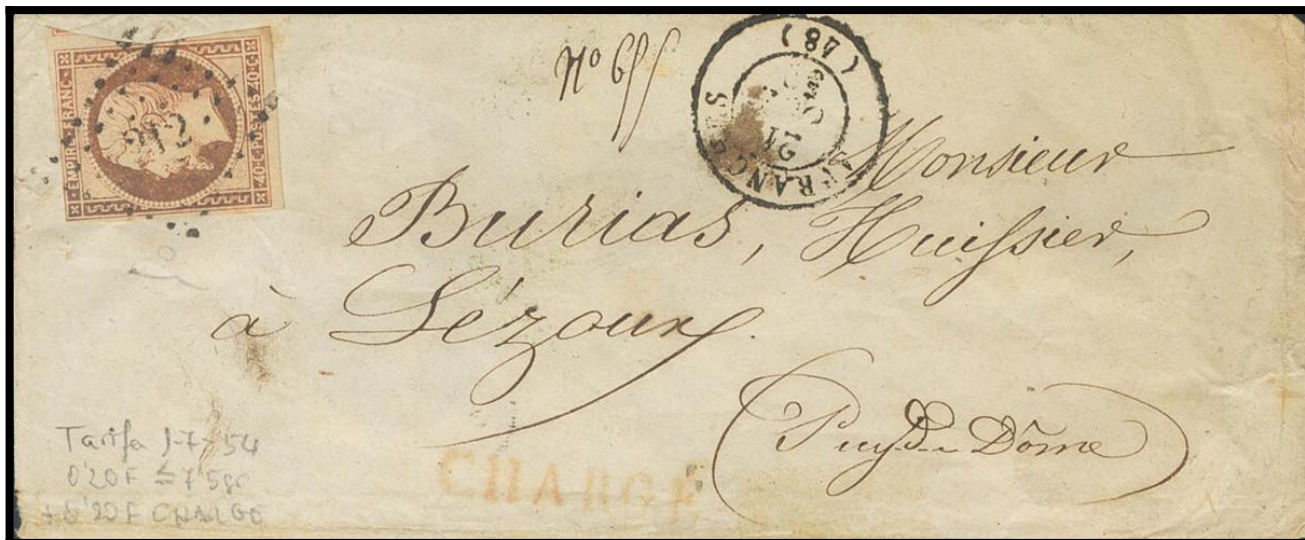 EMPIRE FRANC.
40 C. POSTES 40 C.
212
No 6
(48)
21
Monsieur
Burias, Huissier,
à Lézoux
Puy-de-Dôme
CHARGÉ
Tarifa 1-7-54
0'20F
+ 0'20F CHARGE